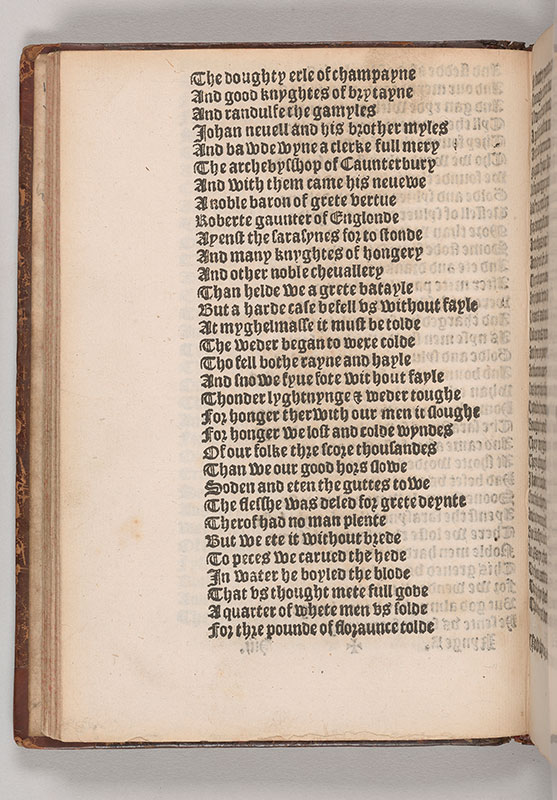 The doughty erle of champayne
And good knyghtes of brytayne
And randulfe the gamyles
Johan neuell and his brother myles
And bawdewyne a clerke full mery
The archebysshop of Caunterbury
And with them came his neuewe
A noble baron of grete vertue
Roberte gaunter of Englonde
Ayenst the sarasynes for to stonde
And many knyghtes of hongery
And other noble cheuallery
Than helde we a grete batayle
But a harde case befell vs without fayle
At myghelmasse it must be tolde
The weder began to wexe colde
Tho fell bothe rayne and hayle
And snowe fyue fote without fayle
Thonder lyghtnynge & weder toughe
For honger therwith our men it sloughe
For honger we lost and colde wyndes
Of our folke thre score thousandes
Than we our good hors slowe
Soden and eten the guttes towe
The flesshe was deled for grete deynte
Therof had no man plente
But we ete it without brede
To peces we carued the hede
In water he boyled the blode
That vs thought mete full gode
A quarter of whete men vs solde
For thre pounde of floraunce tolde